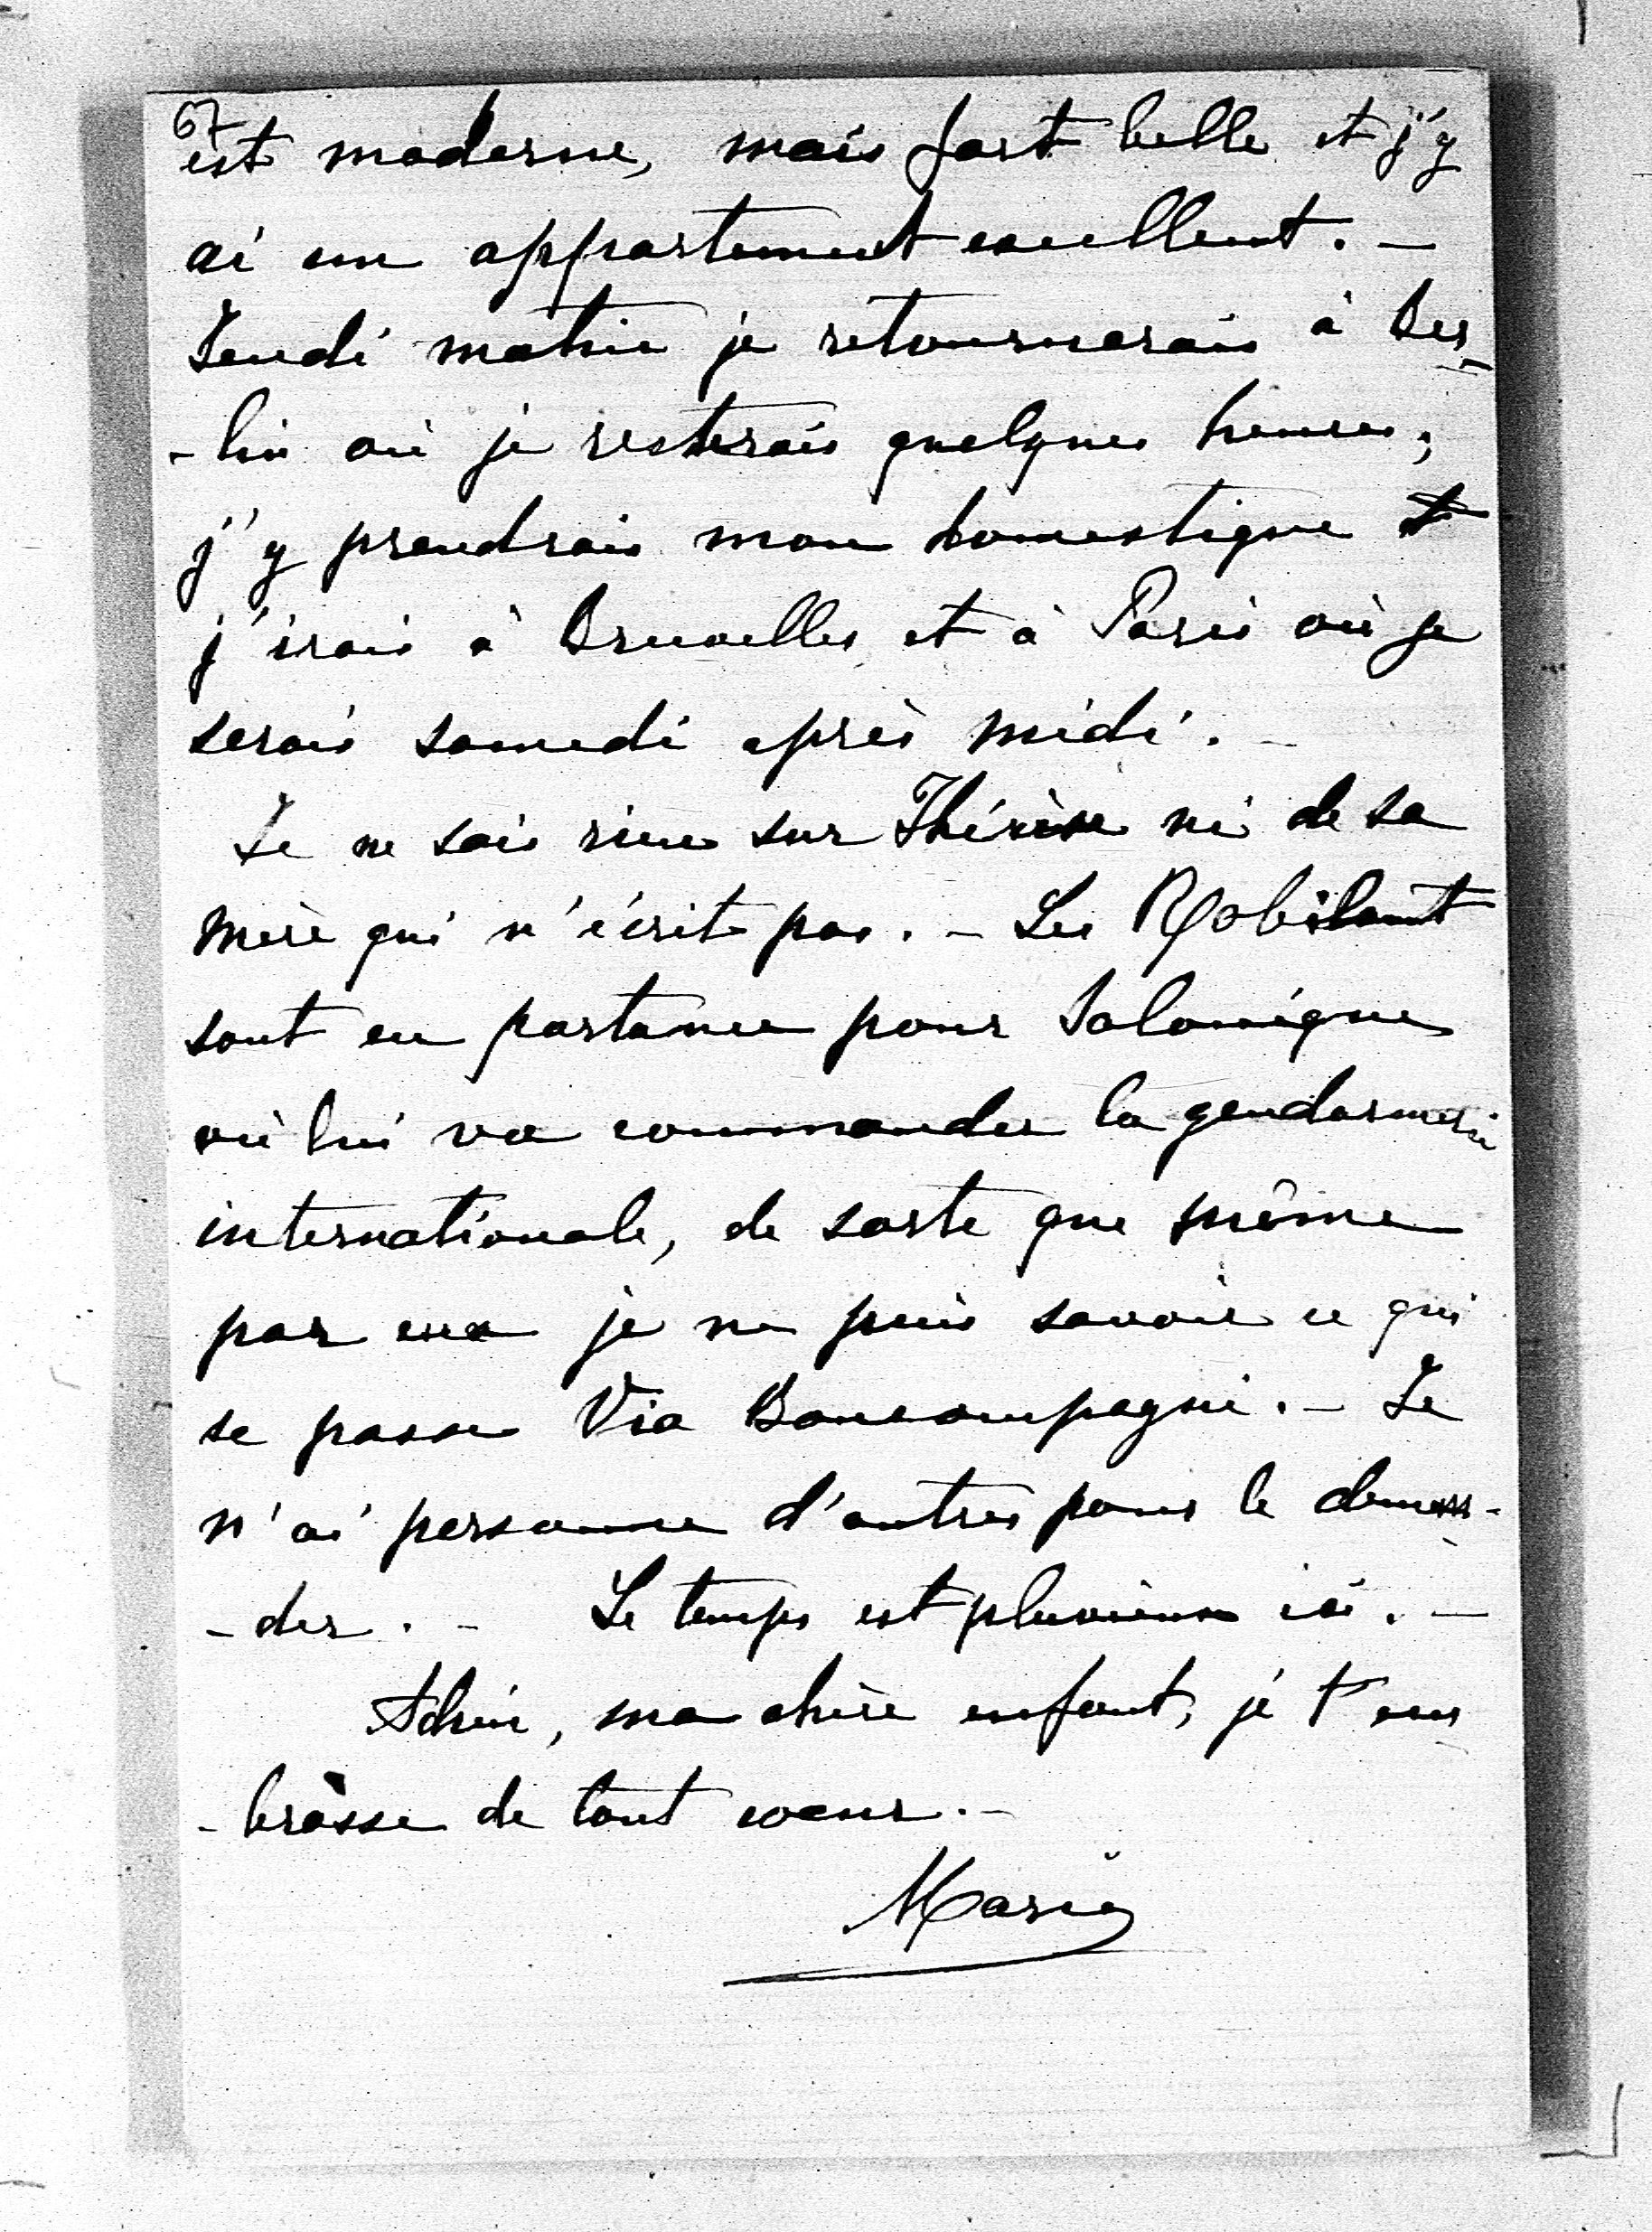 67
est moderne, mais fort belle et j'y
ai un appartement excellent. –
Jeudi matin je retournerais à Ber-
-lin où je resterais quelques heures,
j'y prendrais mon domestique et
j'irais à Bruxelles et à Paris où je
serais samedi après midi. –
Je ne sais rien sur Thérèse ni de sa
mère qui n'écrit pas. – Les Robilant
sont en partance pour Salonique
où lui va commander la gendarmerie
internationale, de sorte que même
par eux je ne puis savoir ce qui
se passe Via Boncompagni. – Je
n'ai personne d'autres pour le deman-
-der. – Le temps est pluvieux ici. –
Adieu, ma chère enfant, je t'em
-brasse de tout coeur. –
Marie